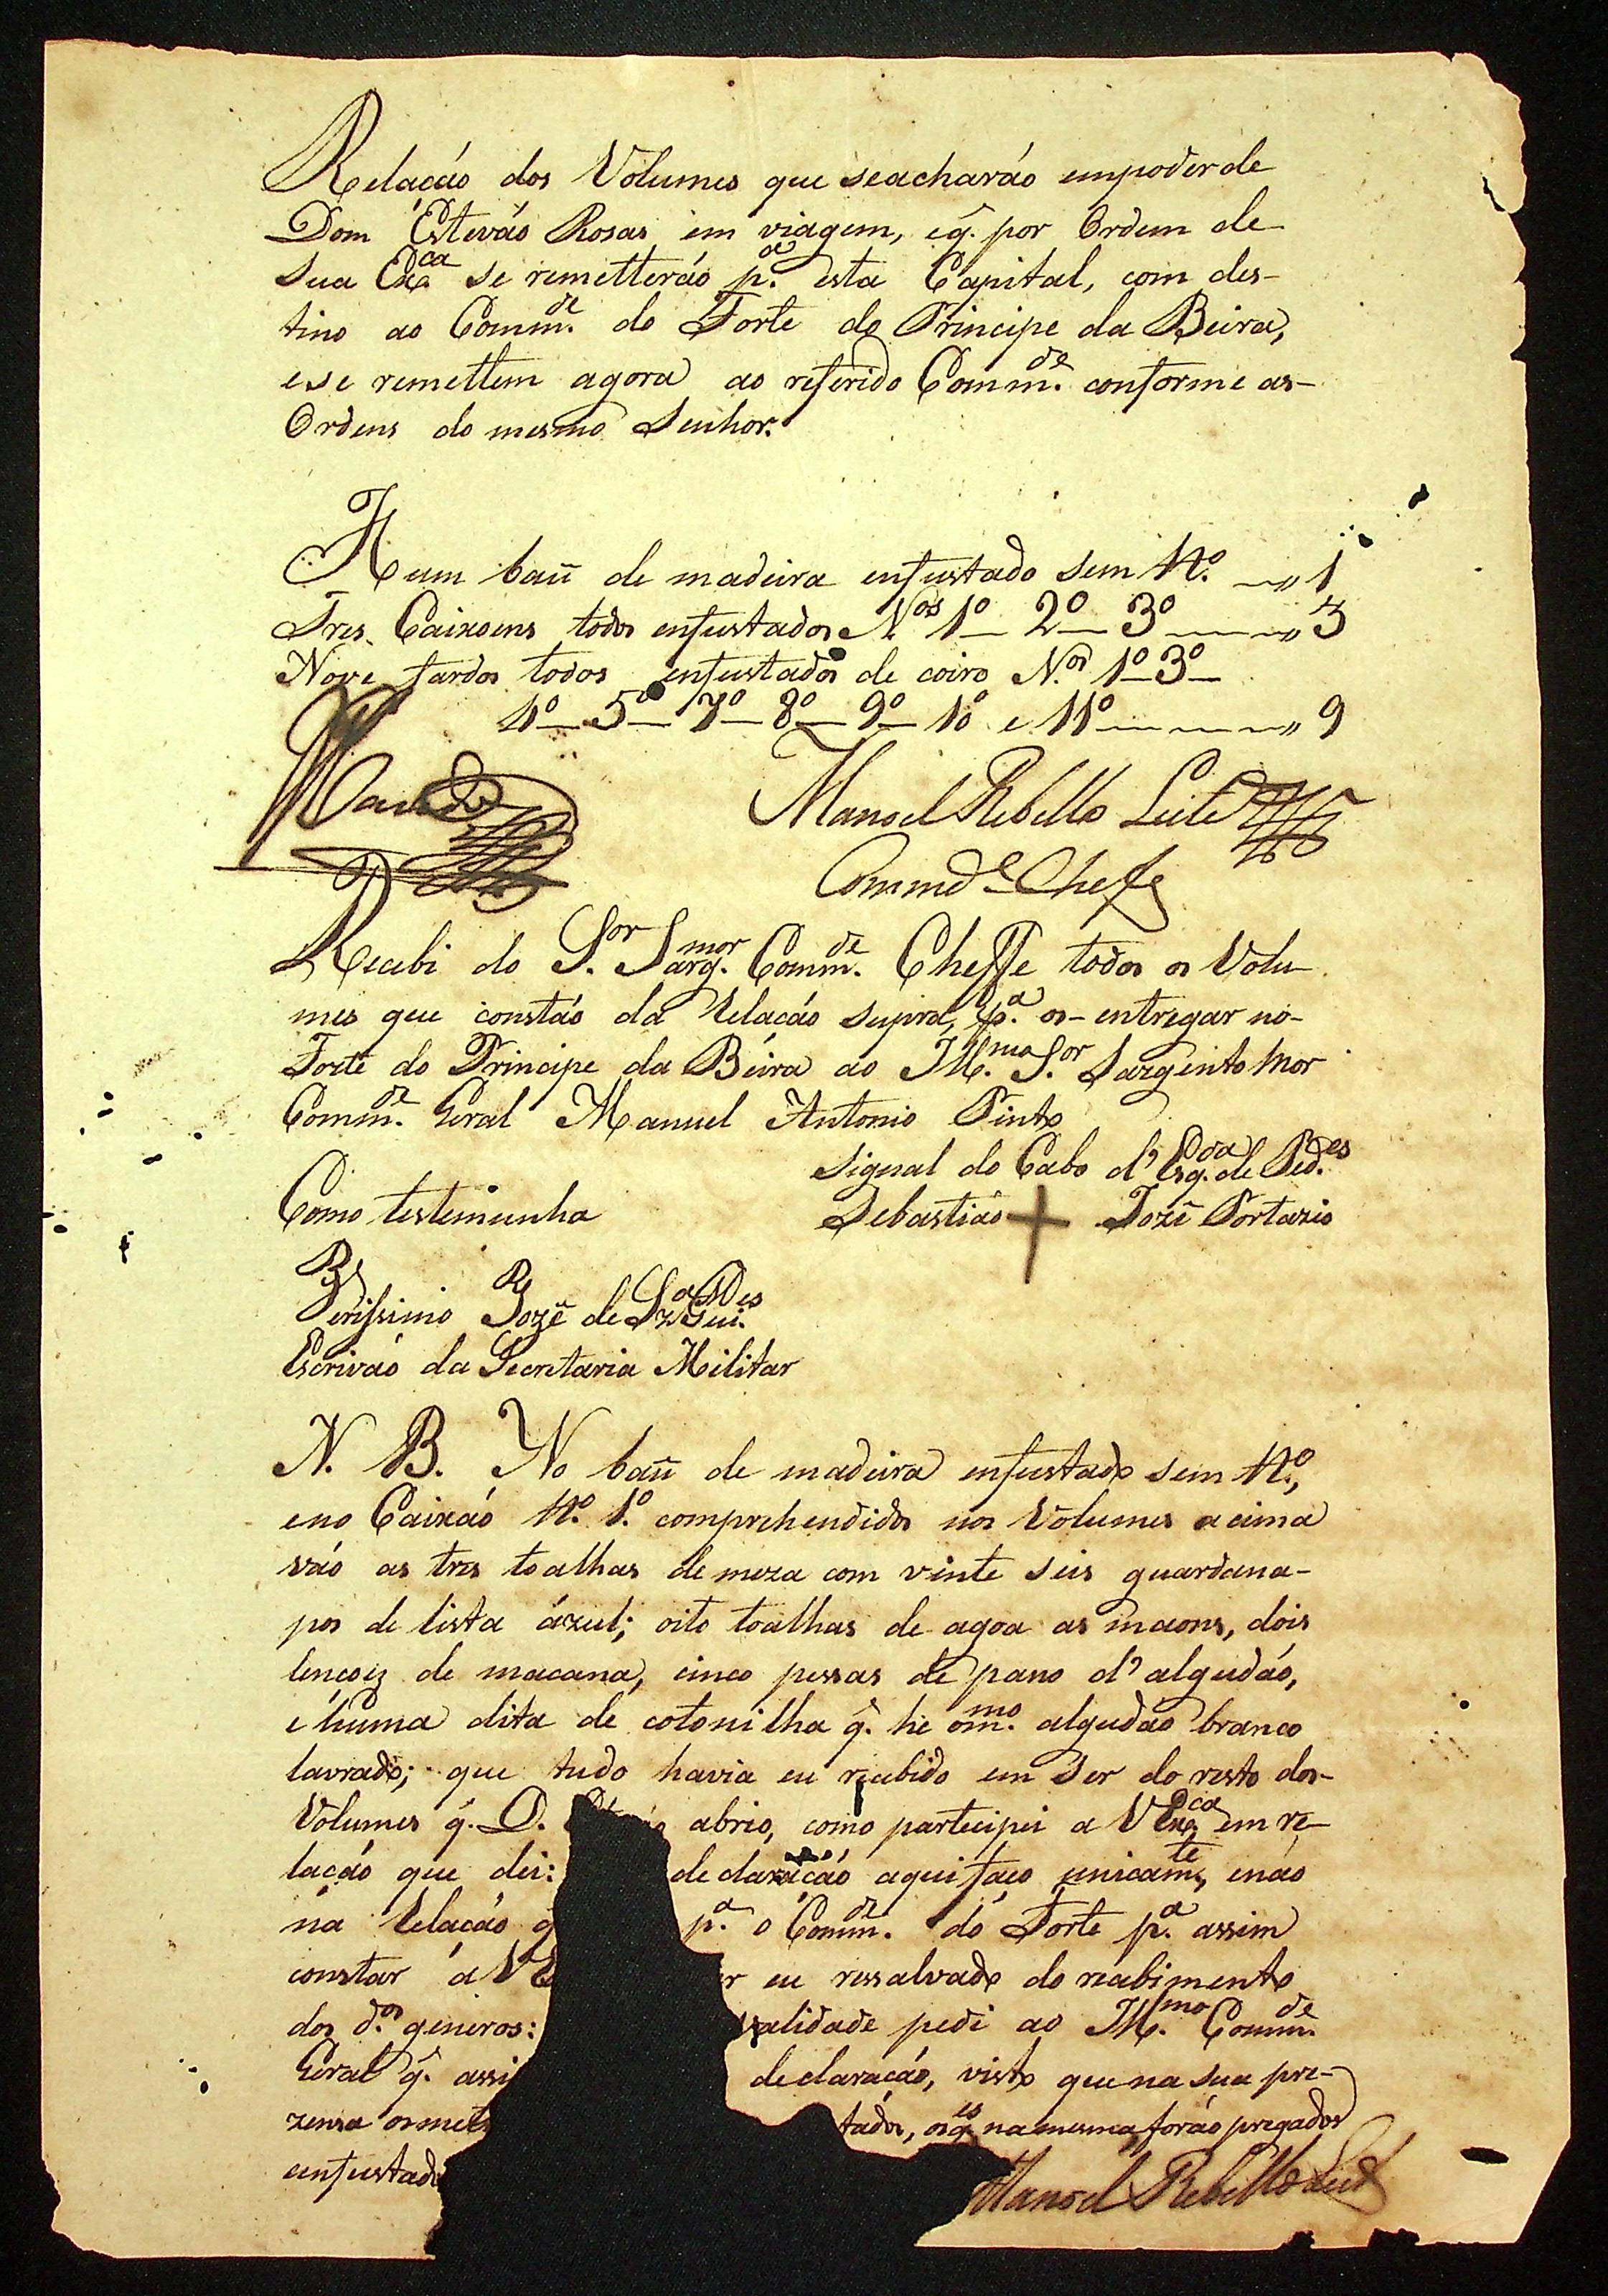 Relação dos Volumes que seacharáo empoder de
Dom Estevão Rosas em viagem, eq̃. por Ordem de
Sua Exca se remetteráo p.a esta Capital, com des-
tino ao Comm.de do Forte do Principe da Beira,
ese remettem agora ao referido Comm.de conforme as
Ordens do mesmo Senhor.
Hum baũ de madeira enfustado sem N.o 1
Tres Caixoens todos enfustados Nos 1o 2o 3o 3
Nove fardos todos enfustados de coiro N.os 1o 3o
4o 5o 7o 8o 9o 10 e 11o 9
Manoel Rebello Leite
Commde Chefe
Recebi do S.or Sarg.mor Comm.de Cheffe todos os Volu
mes que constáo da Relaçáo supra, p.a os entregar no
Forte do Principe da Beira ao Ill.mo S.or Sargento Mor
Comm.de Geral Manuel Antonio Pinto
Signal do Cabo d'Esq.da de Ped.es
Como testemunha Sebastiáo + Jozé Portazio
Verissimo Jozé de
Escriváo da Secretaria Militar
N. B. No baũ de madeira enfustado sem N.o,
eno Caixáo N.o 1.o comprehendidos nos Volumes acima
váo as tres toalhas de meza com vinte seis guardana-
pos de lista azul; oito toalhas de agoa as maons, dois
lençoiz de macana, cinco pessas de pano d'algudáo,
e huma dita de cotonilha q̃. he om.mo algudáo branco
lavrado; que tudo havia eu recebido em ser do resto dos
Volumes q̃. D. abrio, como participei a VExca em re-
laçáo que dei: declaraçáo aqui faco unicamte, enáo
na Relaçáo q p.a o Comm.de do Forte p.a assim
constar a VE r eu ressalvado do recebimento
dos d.os generos: validade pedi ao Ill.mo Comm.de
Geral q̃. assi declaraçáo, visto que na sua pre-
zensa os met tados, na mesma foráo pregados
enfustado
Manoel Rebello Leite